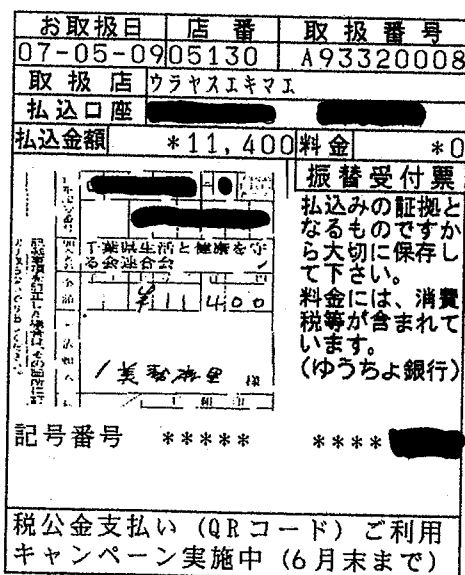 お取扱日 店番 取扱番号
07-05-09 05130 A93320008
取扱店 ウラヤスエキマエ
払込口座
払込金額 *11,400 料金 *0
振替受付票
払込みの証拠と
なるものですか
ら大切に保存し
て下さい。
料金には、消費
税等が含まれて
います。
(ゆうちょ銀行)
千葉県生活と健康を守
る会連合会
¥11400
様
記号番号 ***** ****
税公金支払い(QRコード)ご利用
キャンペーン実施中(6月末まで)